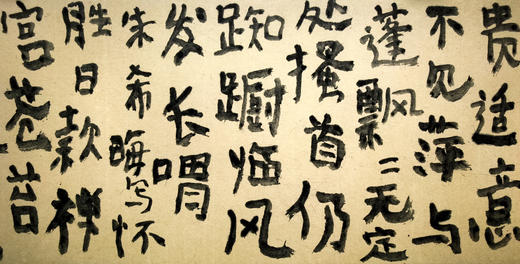 贵适意
不见萍与
蓬飘〻无定
处搔首仍
踟蹰临风
发长喟
朱希晦写怀
胜日款禅
宫苍苔